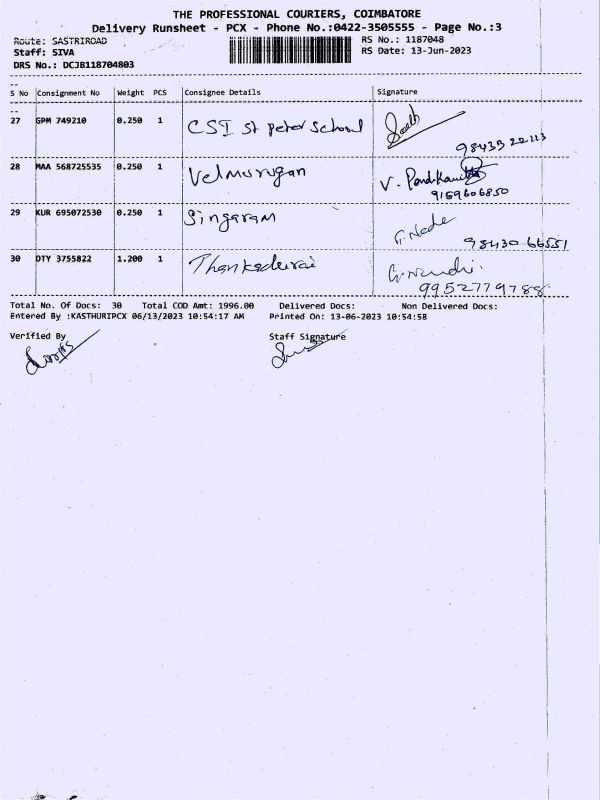 THE PROFESSIONAL COURIERS, COIMBATORE
Delivery Runsheet - PCX - Phone No.:0422-3505555 - Page No.:3
Route: SASTRIROAD RS No.: 1187048
Staff: SIVA RS Date: 13-Jun-2023
DRS No.: DCJB118704803
S No Consignment No Weight PCS Consignee Details Signature
27 GPM 749210 0.250 1 CSI St peter School
28 MAA 568725535 0.250 1 Velmurugan V.
9159606850
29 KUR 695072530 0.250 1 Singaram
98430 66551
30 OTY 3755822 1.200 1 Thankadurai
9952779788
Total No. Of Docs: 30 Total COD Amt: 1996.00 Delivered Docs: Non Delivered Docs:
Entered By :KASTHURIPCX 06/13/2023 10:54:17 AM Printed On: 13-06-2023 10:54:58
Verified By Staff Signature